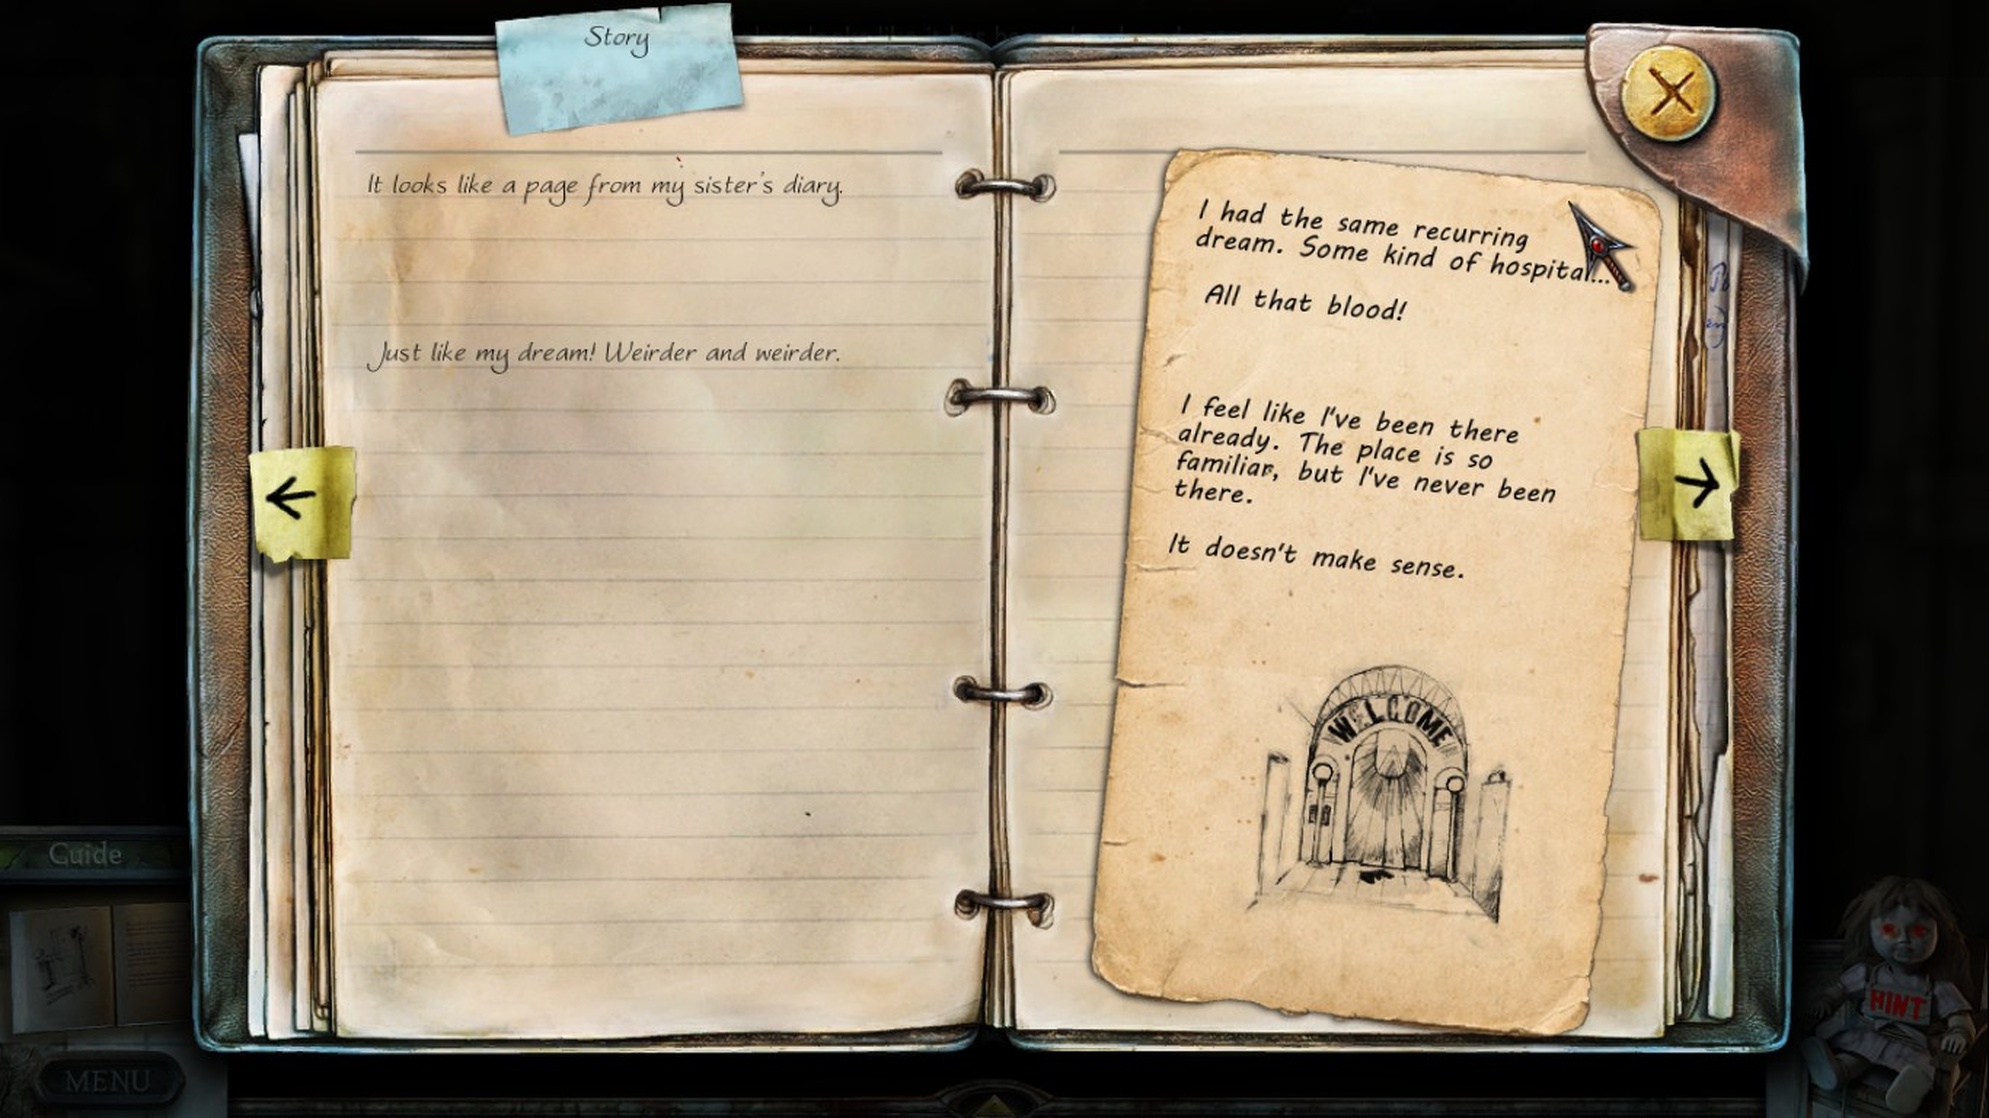 Story
It looks like a page from my sister's diary.
Just like my dream! Weirder and weirder.
I had the same recurring
dream. Some kind of hospital...
All that blood!
I feel like I've been there
already. The place is so
familiar, but I've never been
there.
It doesn't make sense.
WELCOME
Guide
MENU
HINT